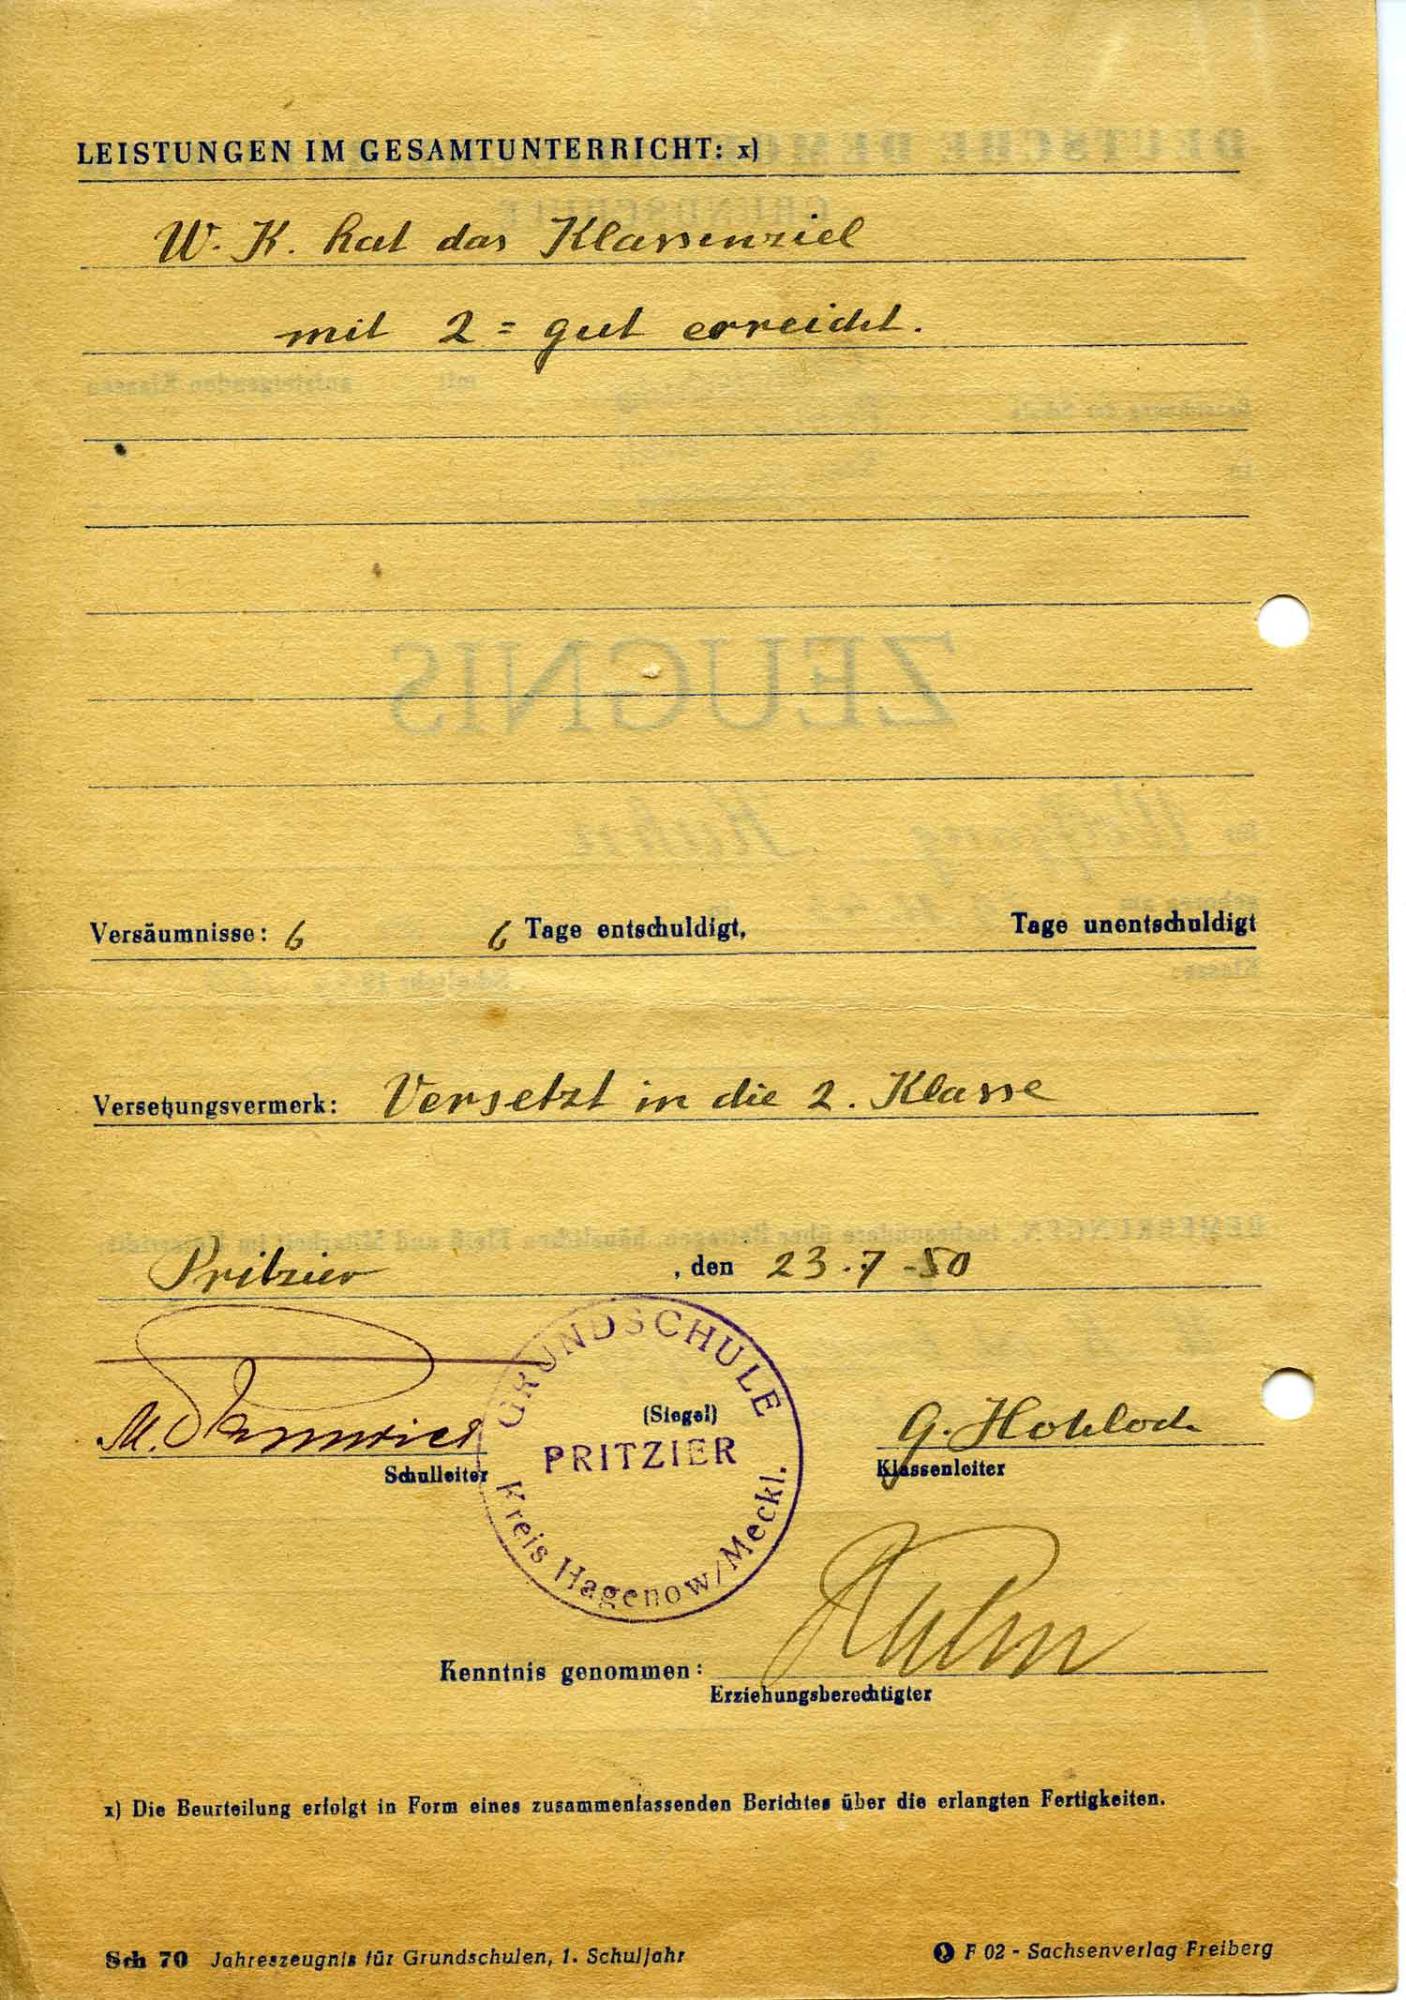 LEISTUNGEN IM GESAMTUNTERRICHT: x)
W. K. hat das Klassenziel
mit 2 = gut erreicht.
ZEUGNIS
Versäumnisse: 6 6 Tage entschuldigt, Tage unentschuldigt
Versetzungsvermerk: Versetzt in die 2. Klasse
Pritzier, den 23.7-50
GRUNDSCHULE
(Siegel)
PRITZIER
Kreis Hagenow/Meckl.
M.
G.
Schulleiter
Klassenleiter
Kenntnis genommen: Kuhn
Erziehungsberechtigter
x) Die Beurteilung erfolgt in Form eines zusammenfassenden Berichtes über die erlangten Fertigkeiten.
Sch 70 Jahreszeugnis für Grundschulen, 1. Schuljahr
F 02 - Sachsenverlag Freiberg